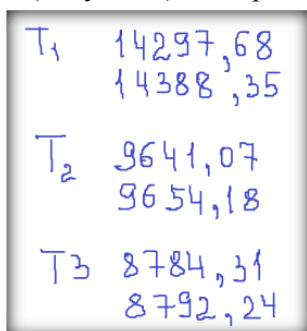 T1 14297,68
14388,35
T2 9641,07
9654,18
T3 8784,31
8792,24